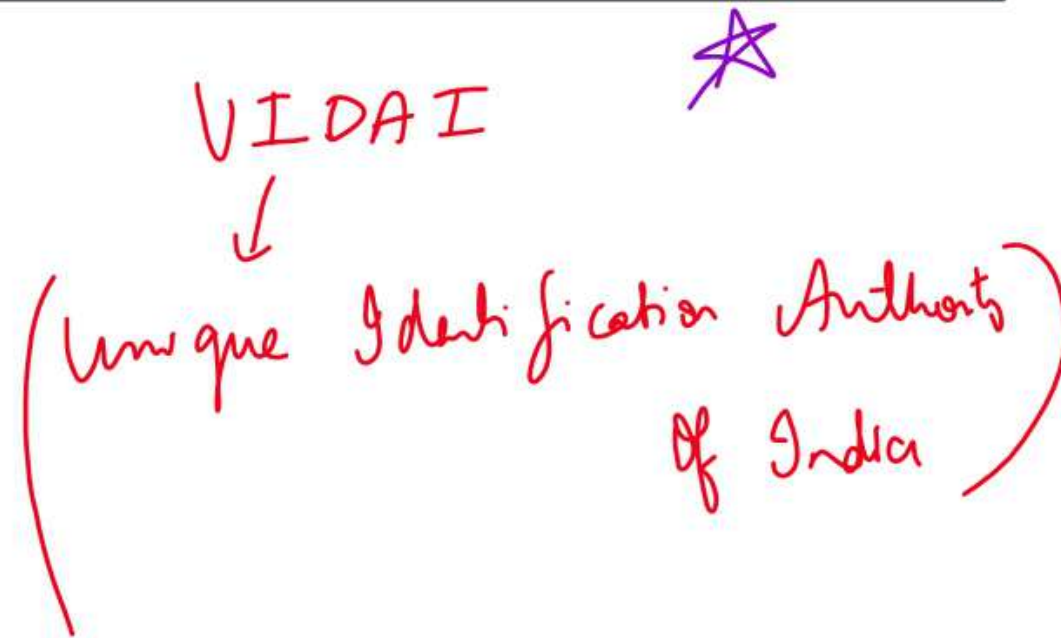 UIDAI
Unique Identification Authority
Of India